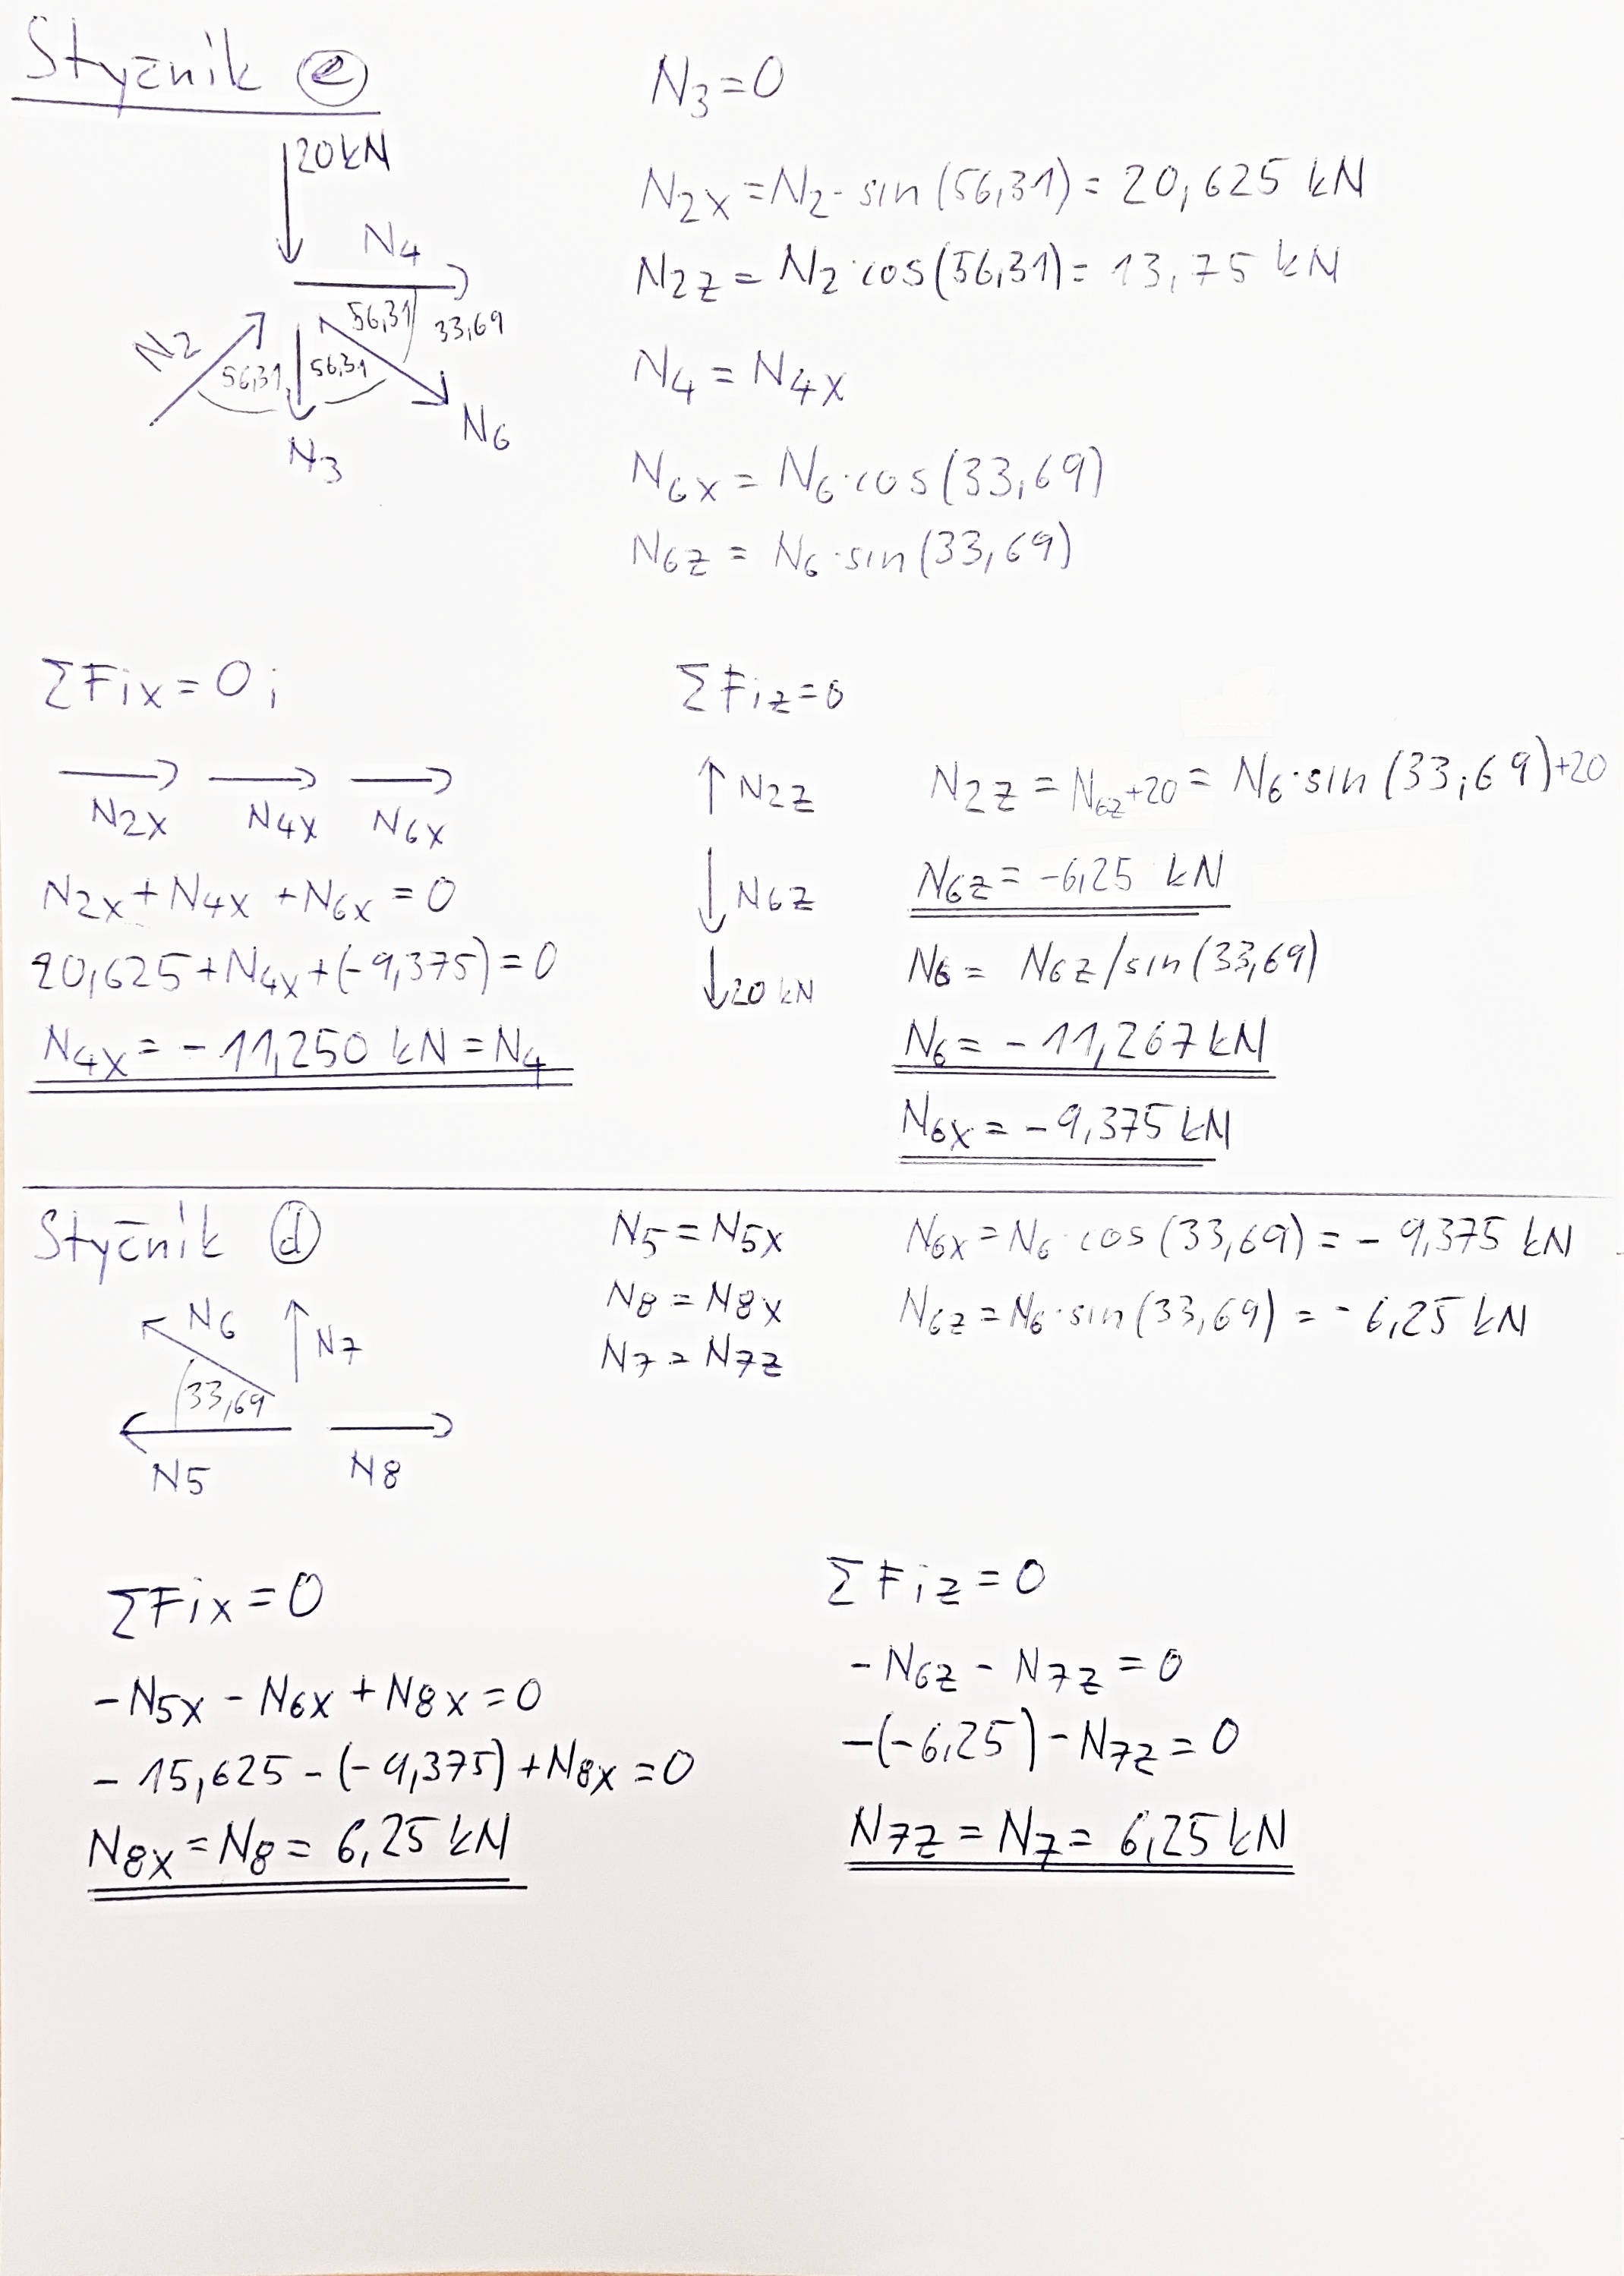 Styčnik e
20kN
N4
N2
56,31
56,31
56,31
33,69
N3
N6
N3=0
N2x=N2·sin(56,31)=20,625 kN
N2z=N2·cos(56,31)=13,75 kN
N4=N4x
N6x=N6·cos(33,69)
N6z=N6·sin(33,69)
ΣFix=0;
N2x N4x N6x
N2x+N4x+N6x=0
20,625+N4x+(-9,375)=0
N4x=-11,250 kN=N4
ΣFiz=0
N2z
N6z
20 kN
N2z=N6z+20=N6·sin(33,69)+20
N6z=-6,25 kN
N6=N6z/sin(33,69)
N6=-11,267kN
N6x=-9,375kN
Styčnik d
N6
N7
33,69
N5
N8
N5=N5x
N8=N8x
N7=N7z
N6x=N6·cos(33,69)=-9,375 kN
N6z=N6·sin(33,69)=-6,25 kN
ΣFix=0
-N5x-N6x+N8x=0
-15,625-(-9,375)+N8x=0
N8x=N8=6,25 kN
ΣFiz=0
-N6z-N7z=0
-(-6,25)-N7z=0
N7z=N7=6,25kN